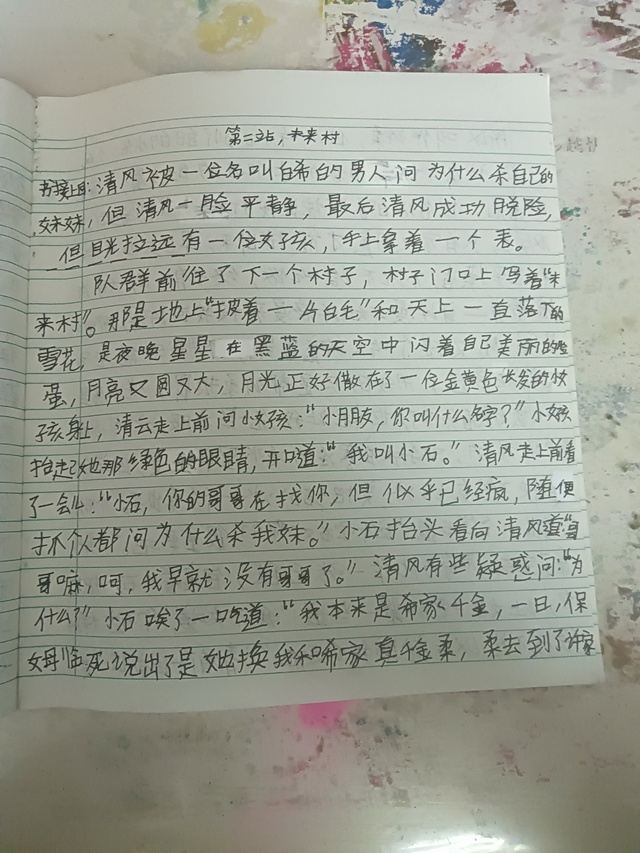 第二站,未来村
书接上回:清风被一位名叫白希的男人问为什么杀自己的
妹妹,但清风一脸平静,最后清风成功脱险,
但目光拉远有一位女孩,手上拿着一个表。
队群前往了下一个村子,村子门口上写着“未
来村”。那是地上“披着一片白毛”和天上一直落下的
雪花,是夜晚星星在黑蓝的天空中闪着自己美丽的
蛋,月亮又圆又大,月光正好撒在了一位金黄色长发的小女
孩身上,清云走上前问小女孩:“小朋友,你叫什么名字?”小女孩
抬起了她那绿色的眼睛,开口道:“我叫小石。”清风走上前看
了一会儿:“小石,你的哥哥在找你,但似乎已经疯,随便
抓个人都问为什么杀我妹。”小石抬头看向清风道“哥
哥嘛,呵,我早就没有哥哥了。”清风有些疑惑问:“为
什么?”小石唉了一口气道:“我本来是希家千金,一日,保
女母临死说出了是她换我和唏家真千金柔,柔去到了许家